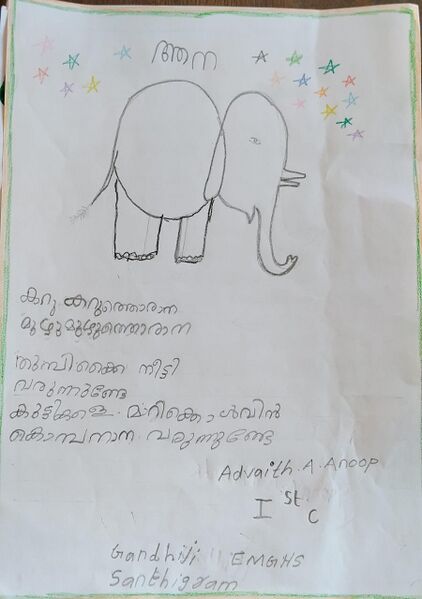 ആന
കറു കറുത്തൊരാന
മുഴു മുഴുത്തൊരാന
തുമ്പിക്കൈ നീട്ടി
വരുന്നുണ്ടേ
കുട്ടികളെ മാറിക്കൊൾവിൻ
കൊമ്പനാന വരുന്നുണ്ടേ
Advaith. A. Anoop
I st C
Gandhiji EMGHS
Santhigram